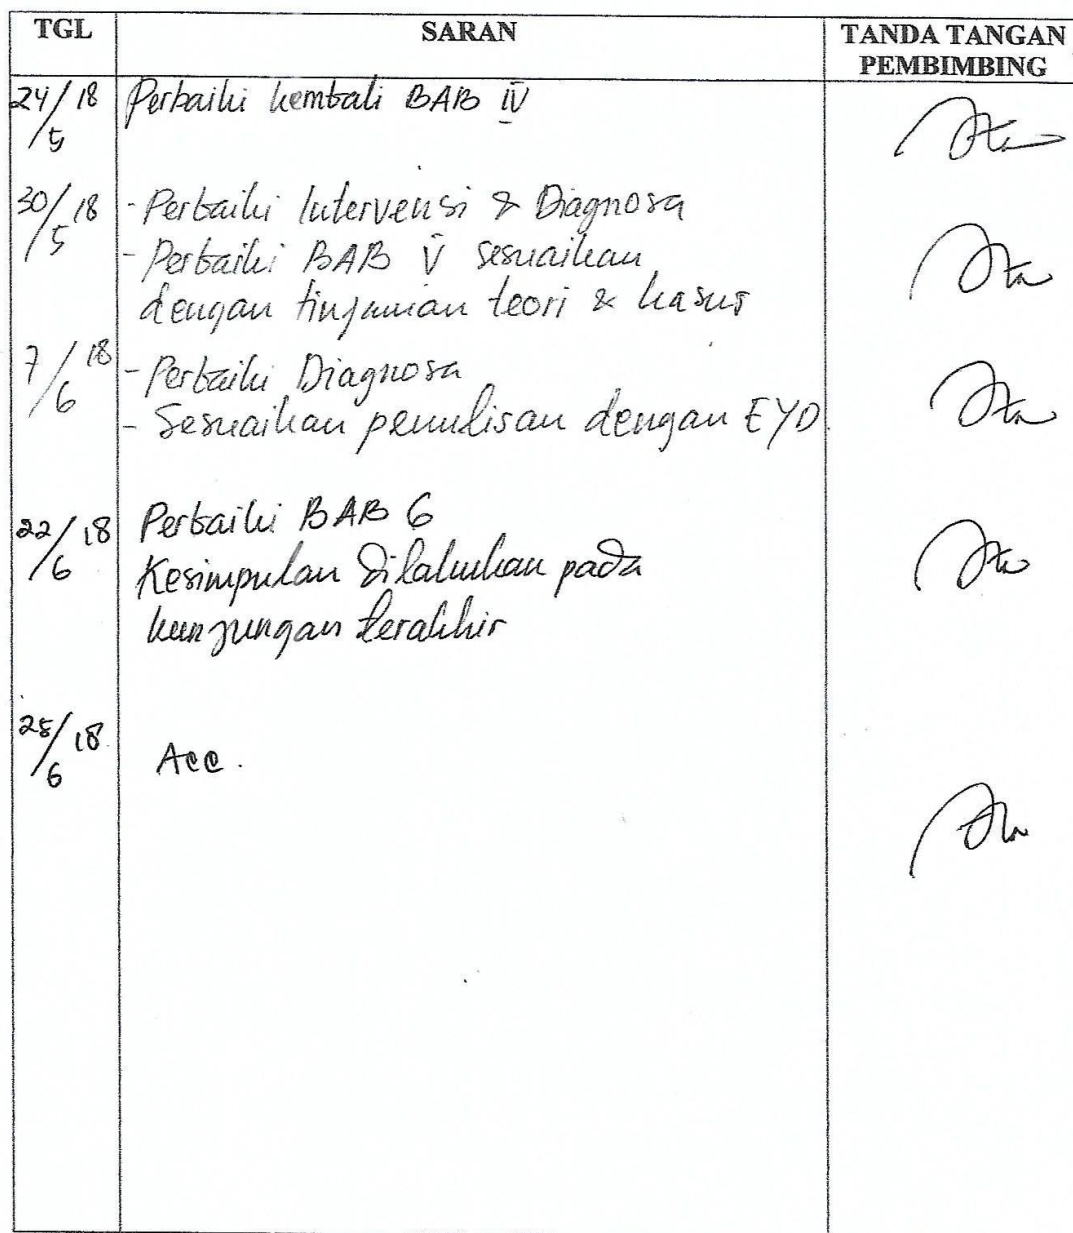 TGL SARAN TANDA TANGAN
PEMBIMBING
24/5 18 Perbaiki kembali BAB IV
30/5 18 - Perbaiki Intervensi & Diagnosa
- Perbaiki BAB V sesuaikan
dengan tinjauan teori & kasus
7/6 18 - Perbaiki Diagnosa
- Sesuaikan penulisan dengan EYD.
22/6 18 Perbaiki BAB 6
Kesimpulan dilakukan pada
kunjungan terakhir
25/6 18 Acc.